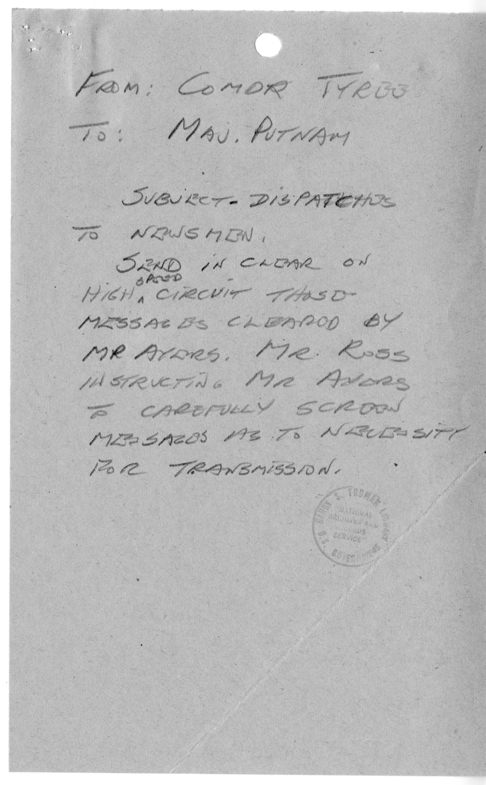 FROM: COMDR TYREE
TO: MAJ. PUTNAM
SUBJECT - DISPATCHES
TO NEWSMEN.
SEND IN CLEAR ON
HIGH SPEED CIRCUIT THOSE
MESSAGES CLEARED BY
MR AYERS. MR. ROSS
INSTRUCTING MR AYERS
TO CAREFULLY SCREEN
MESSAGES AS TO NECESSITY
FOR TRANSMISSION.
HARRY S. TRUMAN LIBRARY
NATIONAL
ARCHIVES AND
RECORDS
SERVICE